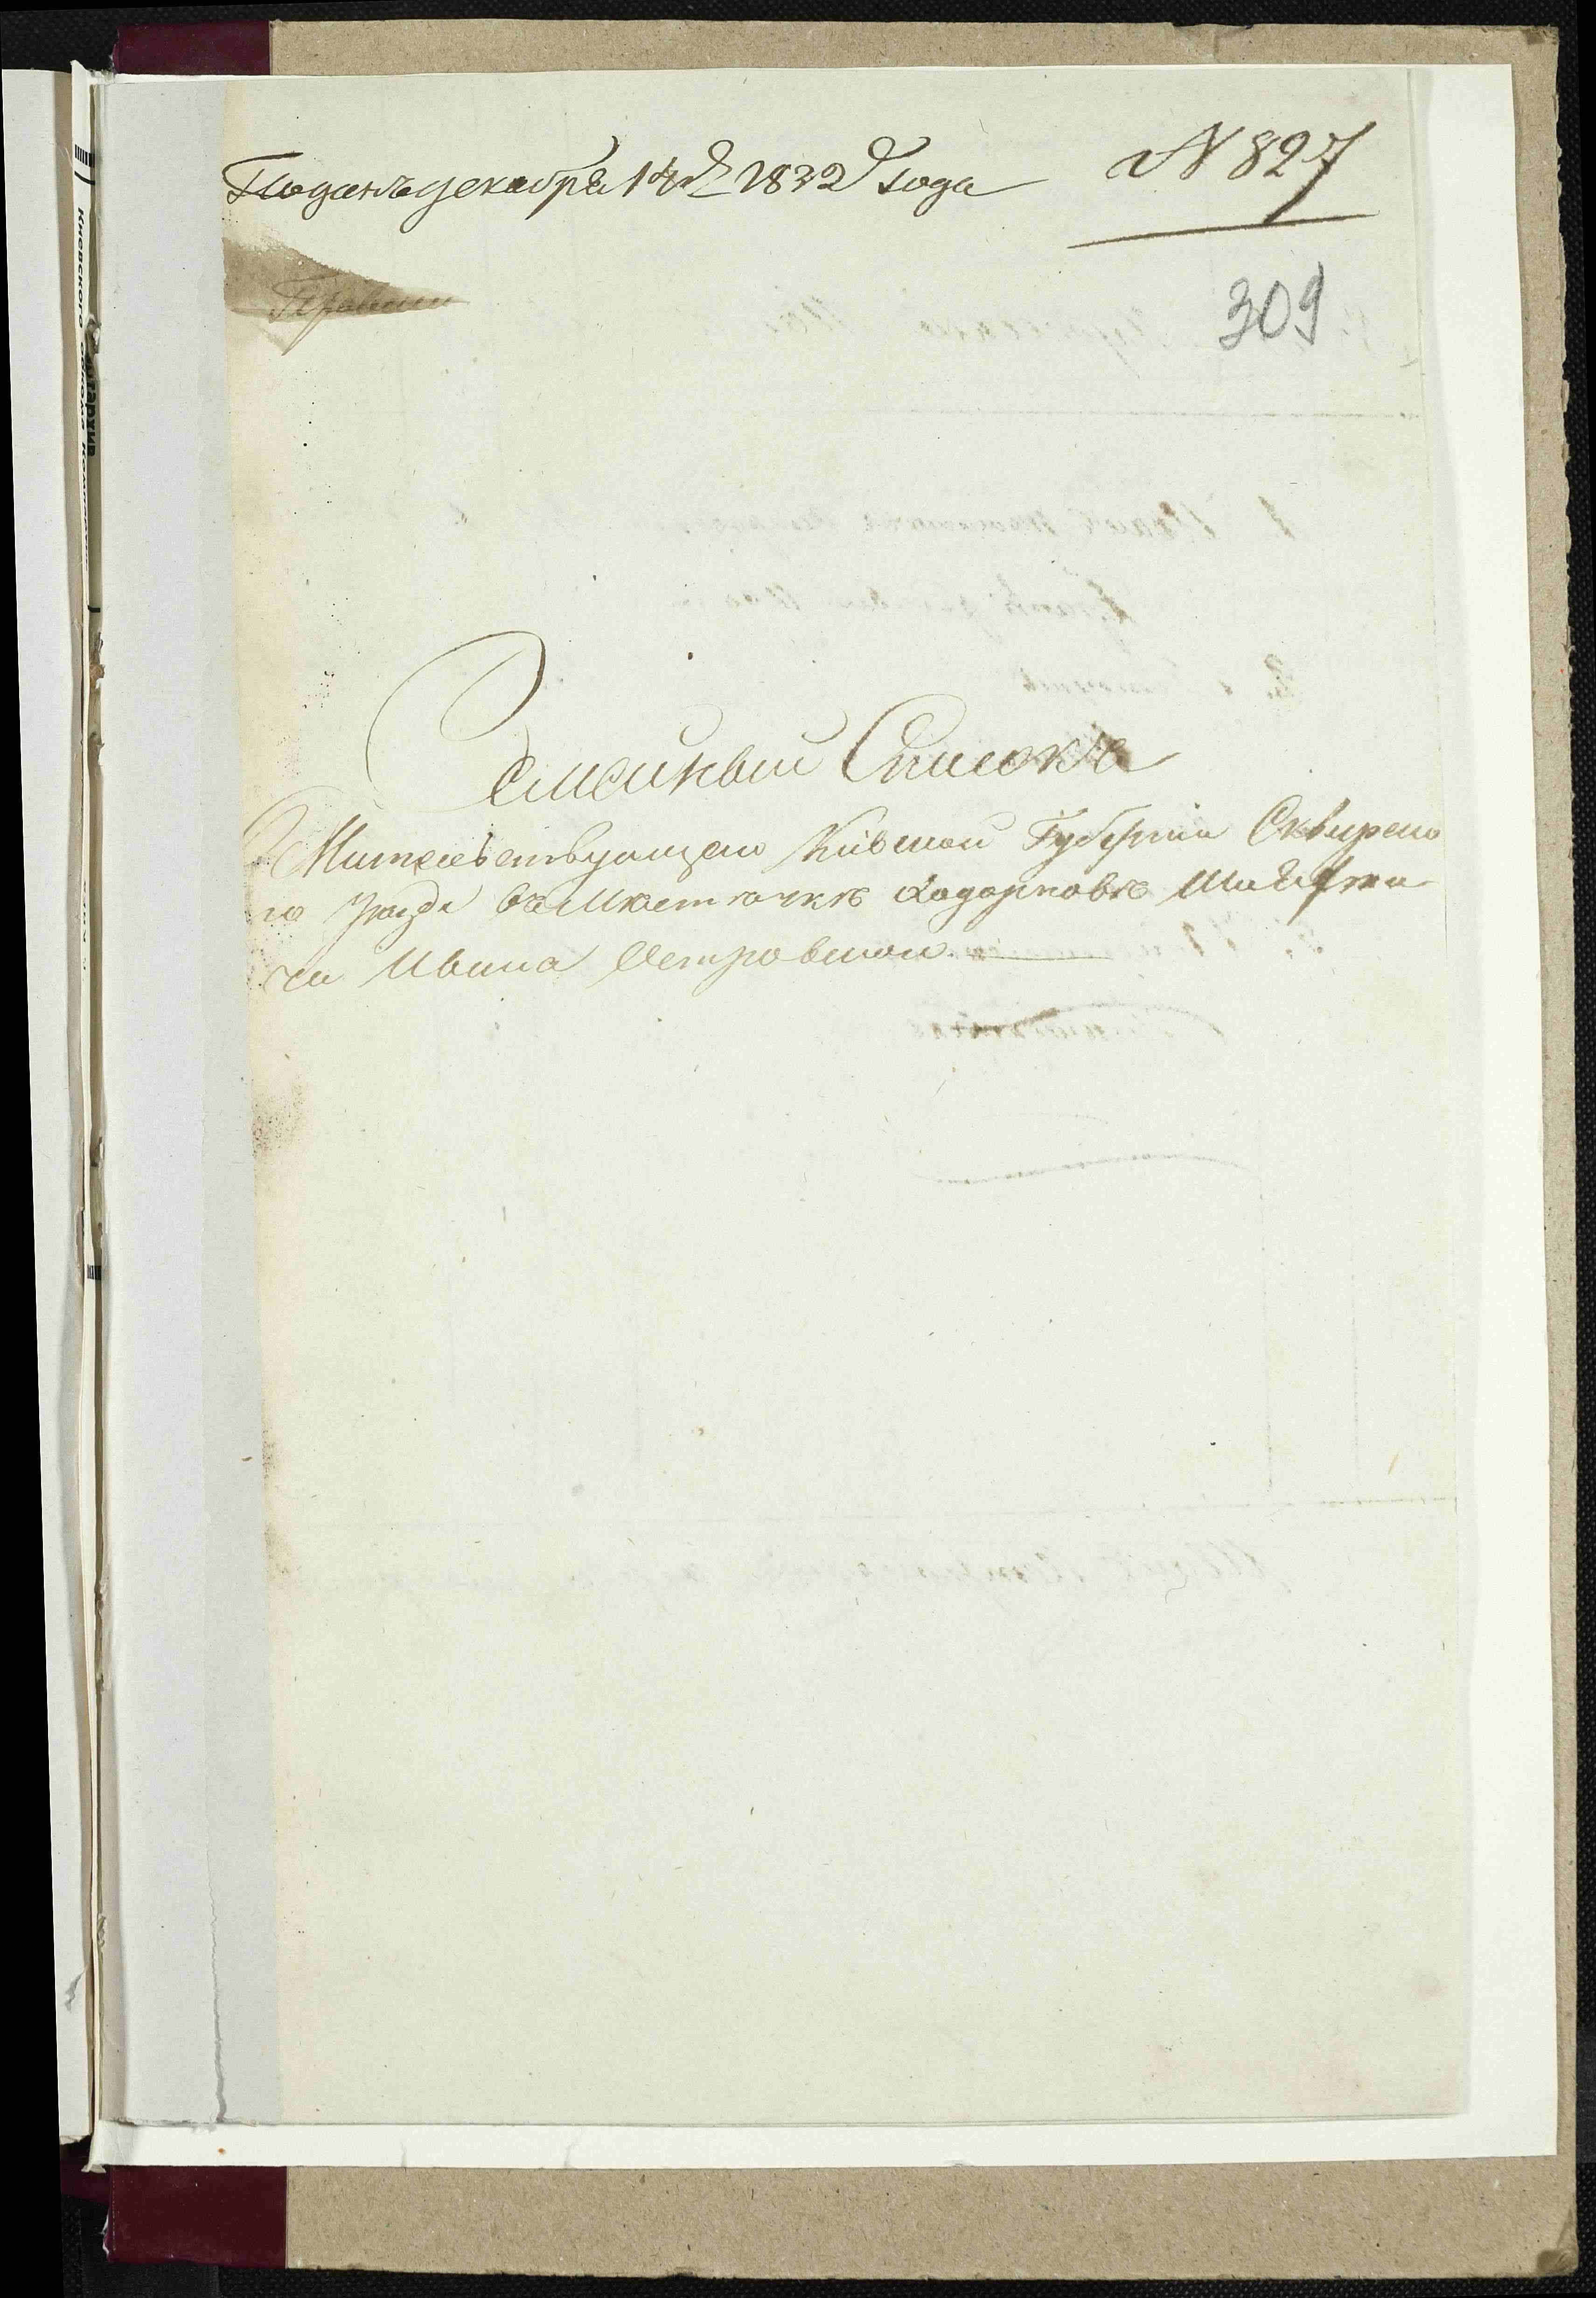 Поданъ декабря 14 д 1832 года
N 827
309
Семейный Списокъ
Жительствующаго Кіевской Губерніи Сквирско
го Уезда въ Местечкъ Ходорковъ Шляхти
ча Ивана Петровскаго